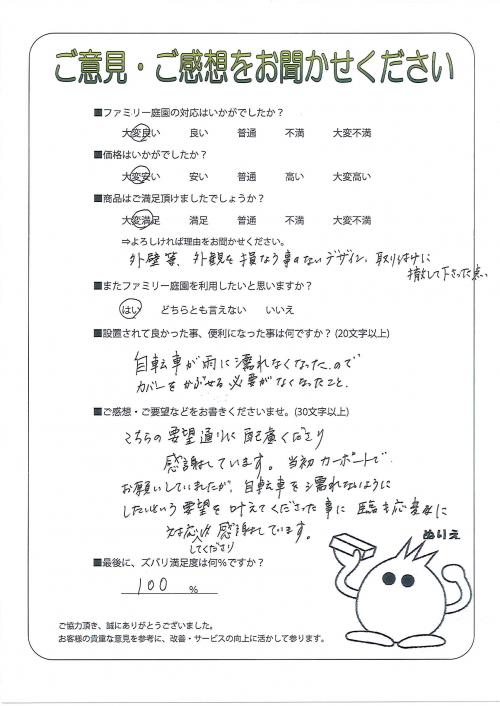 ご意見・ご感想をお聞かせください
■ファミリー庭園の対応はいかがでしたか？
大変良い 良い 普通 不満 大変不満
■価格はいかがでしたか？
大変安い 安い 普通 高い 大変高い
■商品はご満足頂けましたでしょうか？
大変満足 満足 普通 不満 大変不満
⇒よろしければ理由をお聞かせください。
外壁等、外観を損なう事のないデザイン。取り付けに
徹して下さった点。
■またファミリー庭園を利用したいと思いますか？
はい どちらとも言えない いいえ
■設置されて良かった事、便利になった事は何ですか？(20文字以上)
自転車が雨に濡れなくなったので
カバーをかぶせる必要がなくなったこと。
■ご感想・ご要望などをお書きくださいませ。(30文字以上)
こちらの要望通りに配慮くださり
感謝しています。当初カーポートで
お願いしていましたが、自転車を濡れないように
したいという要望を叶えてくださった事に 臨き応変に
対応 感謝しています。
してくださり
ぬりえ
■最後に、ズバリ満足度は何%ですか？
100 %
ご協力頂き、誠にありがとうございました。
お客様の貴重な意見を参考に、改善・サービスの向上に活かして参ります。